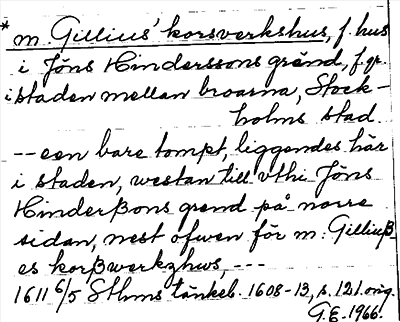 * m. Gillius' korsverkshus, f. hus
i Jöns Hinderssons gränd, f. gr.
i staden mellan broarna, Stock-
holms stad.
-- een bare tompt, liggendes här
i staden, westan till vthi Jöns
Hinderßons grend på norre
sidan, nest ofwen för m: Gilliuß-
es korßwerkzhws, ---
1611 6/5 Sthms tänkeb. 1608-13, s. 121. orig.
G.E. 1966.